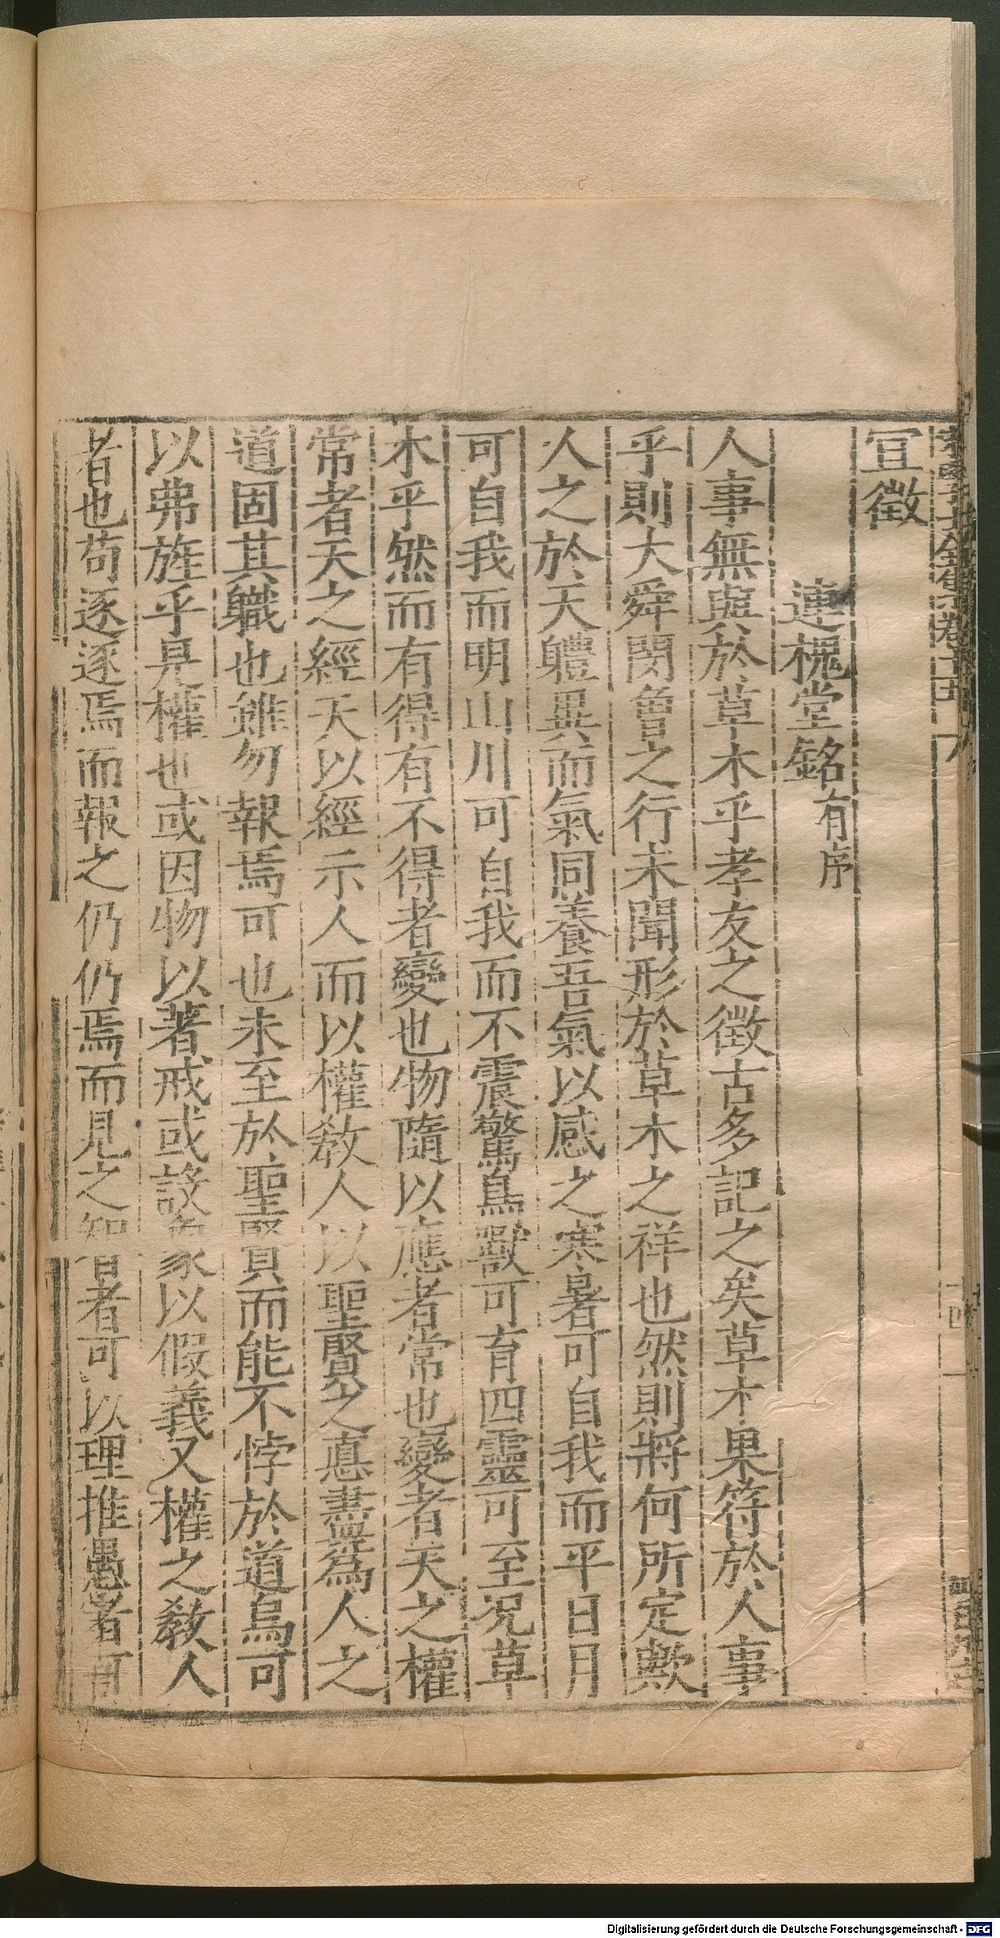 宜徵
連槐堂銘有序
人事無與於草木乎孝友之徵古多記之矣草木果符於人事
乎則大舜閔曾之行未聞形於草木之祥也然則將何所定歟
人之於天體異而氣同養吾氣以感之寒暑可自我而平日月
可自我而明山川可自我而不震驚鳥獸可育四靈可至况草
木乎然而有得有不得者變也物隨以應者常也變者天之權
常者天之經天以經示人而以權敎人以聖賢之悳盡爲人之
道固其職也雖勿報焉可也未至於聖賢而能不悖於道烏可
以弗旌乎見權也或因物以著戒或設象以假義又權之敎人
者也苟逐逐焉而報之仍仍焉而見之智者可以理推愚者可
Digitalisierung gefördert durch die Deutsche Forschungsgemeinschaft - DFG